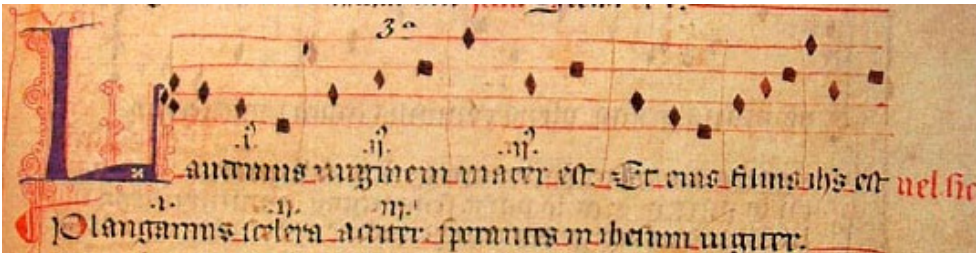 3ª
.i. .ij. .iij.
Laudemus uirginem mater est. Et eius filius ihs est uel sic
.i. .ij. .iij.
Plangamus scelera acriter. sperantes in ihesum iugiter.